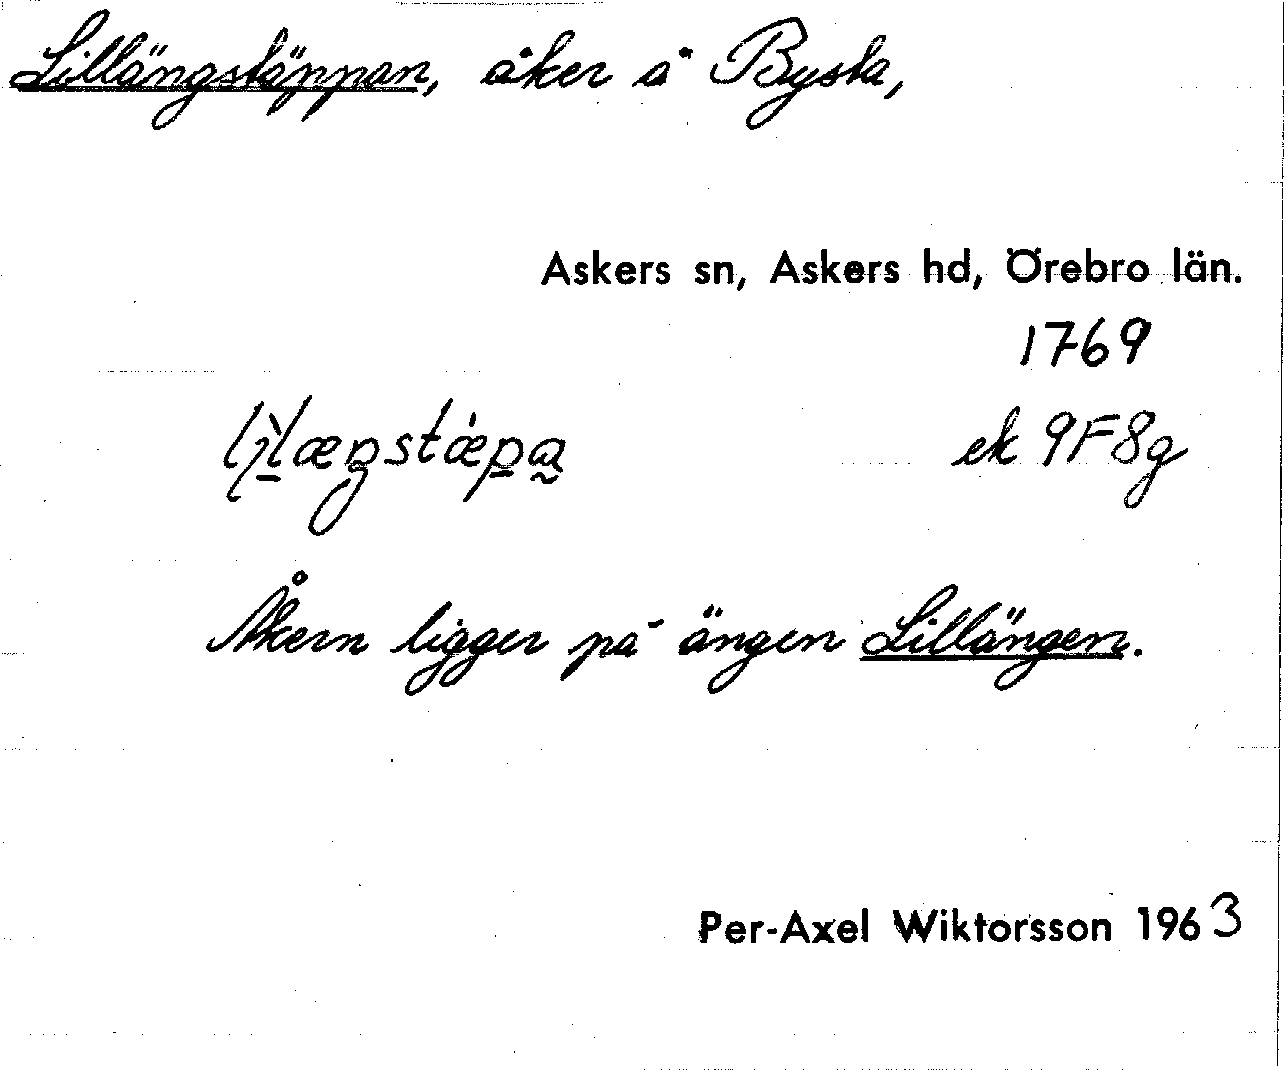 Lillängstäppan, åker å Bysta,
Askers sn, Askers hd, Örebro län.
1769
ek 9F8g
Åkern ligger på ängen Lillängen.
Per-Axel Wiktorsson 1963